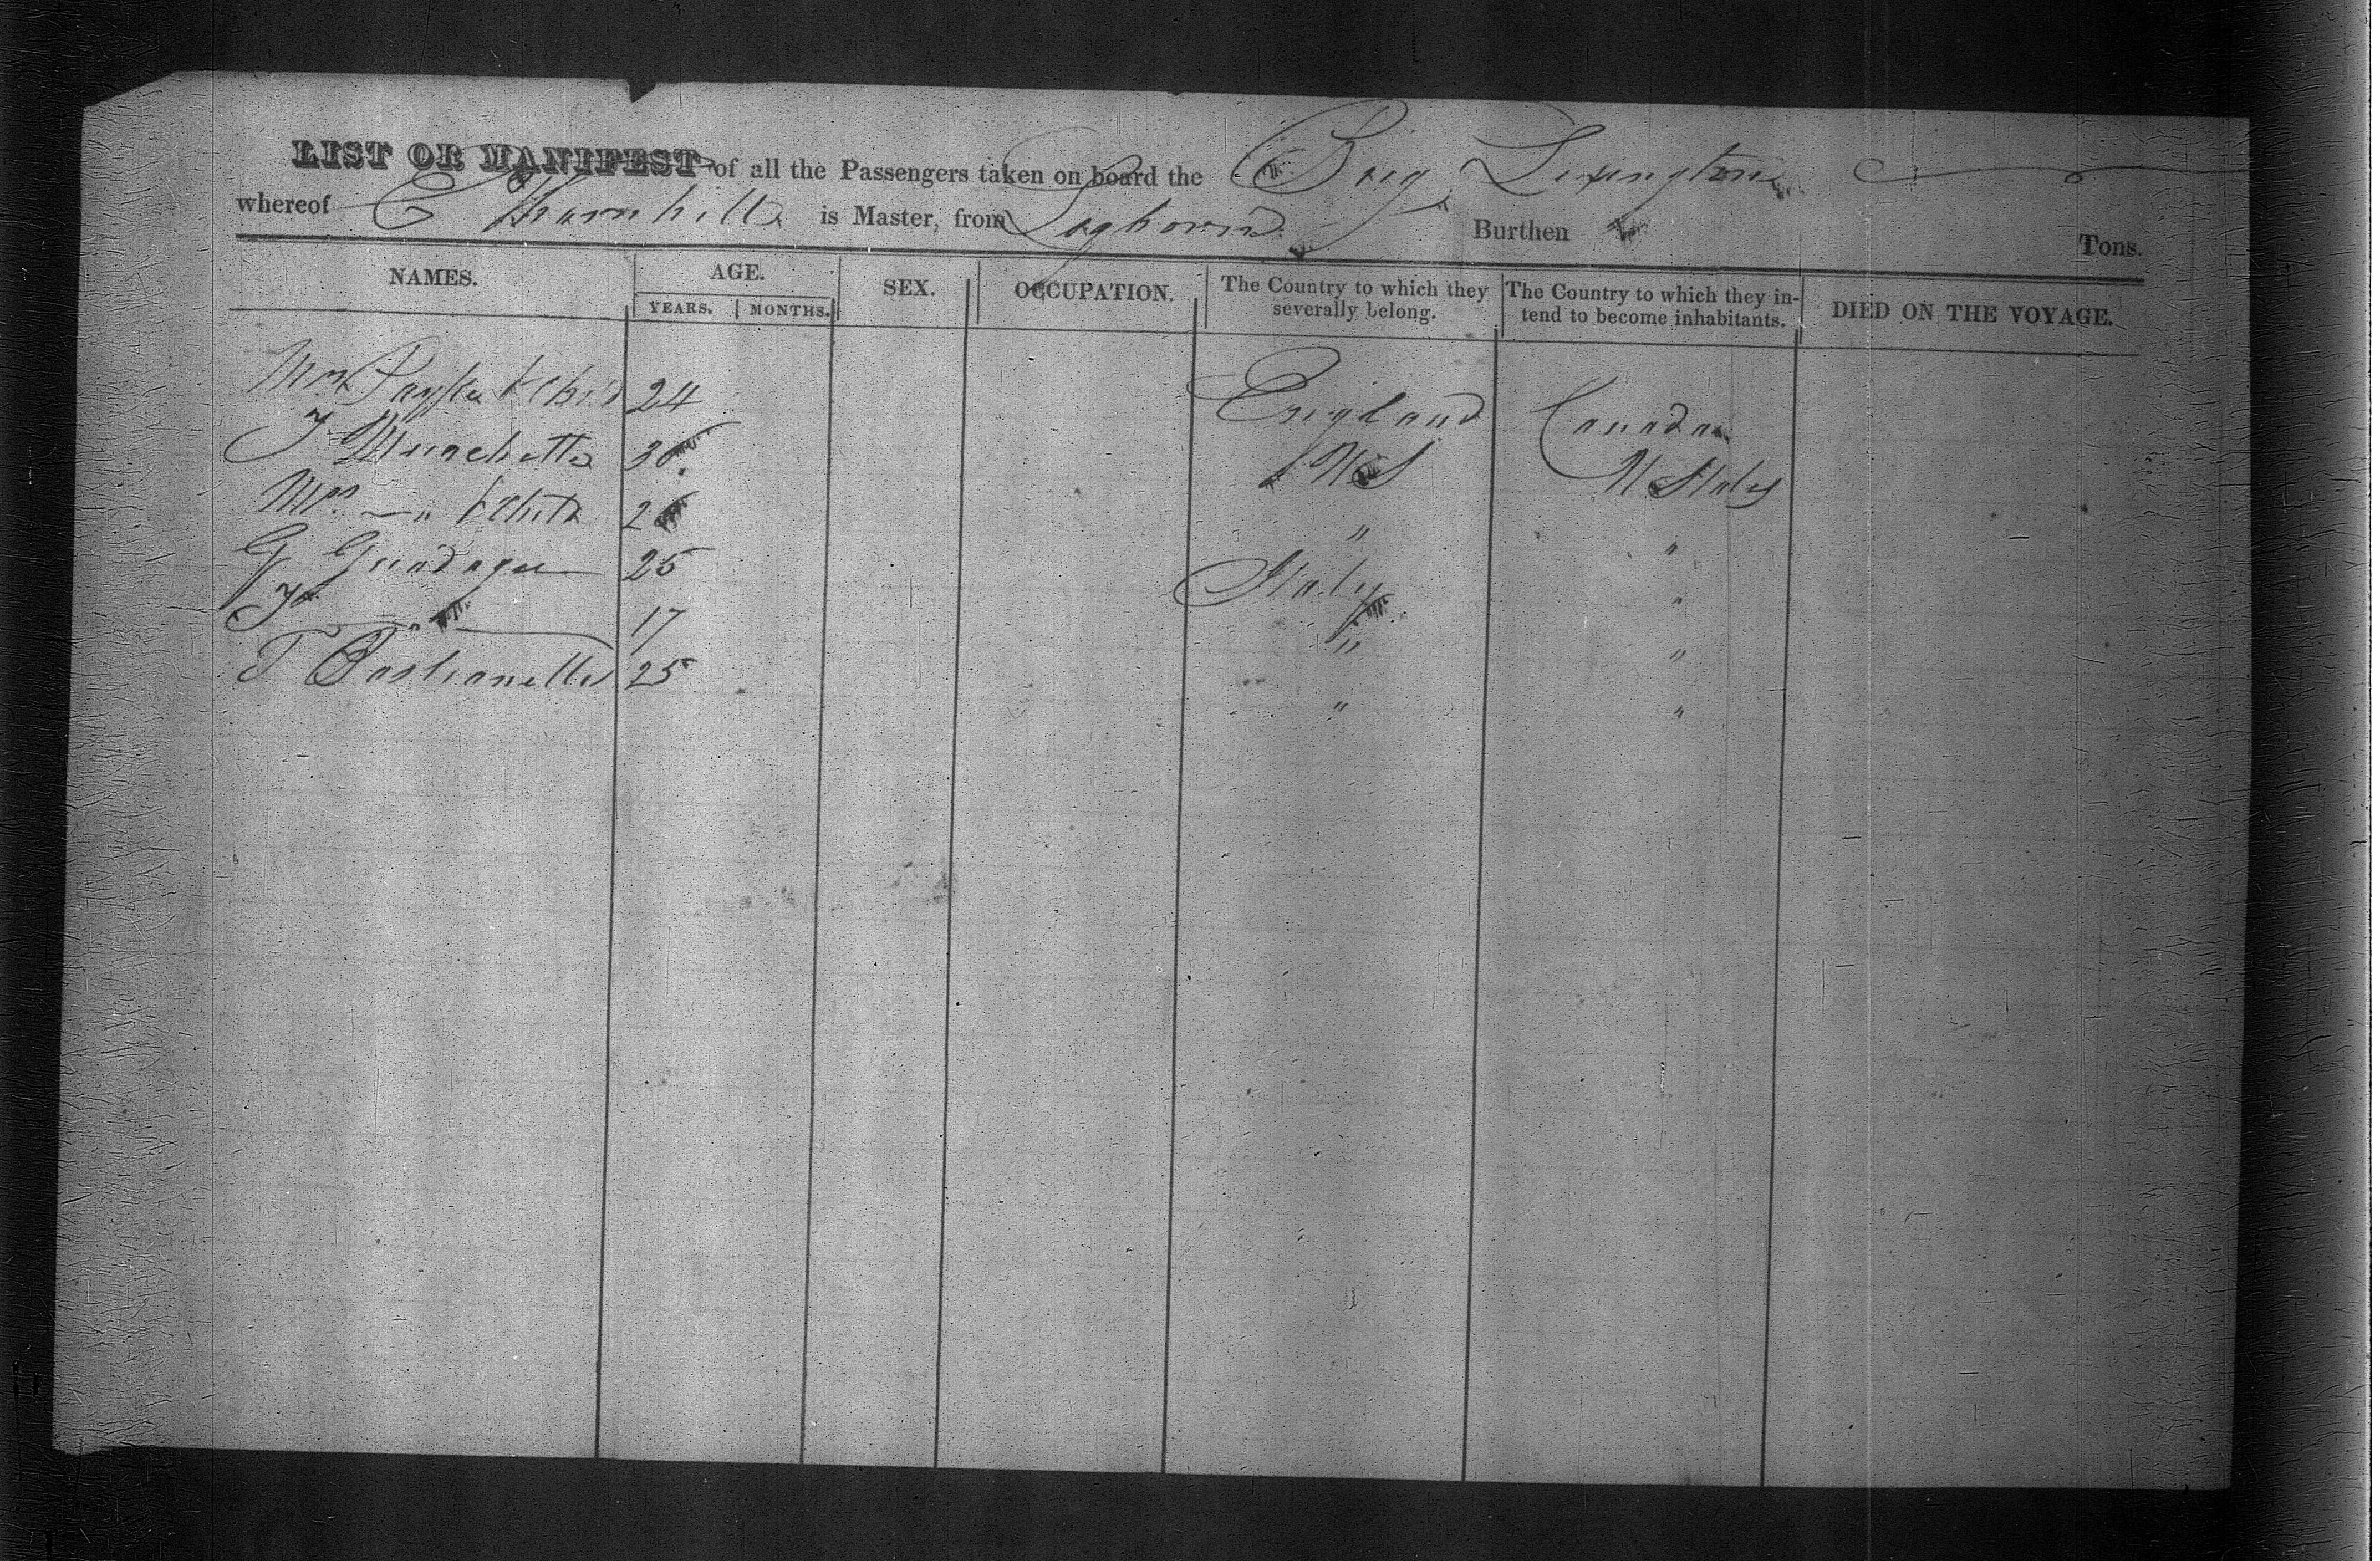 LIST OR MANIFEST of all the Passengers taken on board the Brig Lexington
whereof C Thornhill is Master, from Leghorn Burthen Tons.
NAMES. AGE. SEX. OCCUPATION. The Country to which they severally belong. The Country to which they in- tend to become inhabitants. DIED ON THE VOYAGE.
YEARS. MONTHS.
Mrs & Child 24 England Canada
30 US U States
Mrs — " & Child 2 " "
G 25 Italy "
" 17 " "
T Bastianelli 25 " "